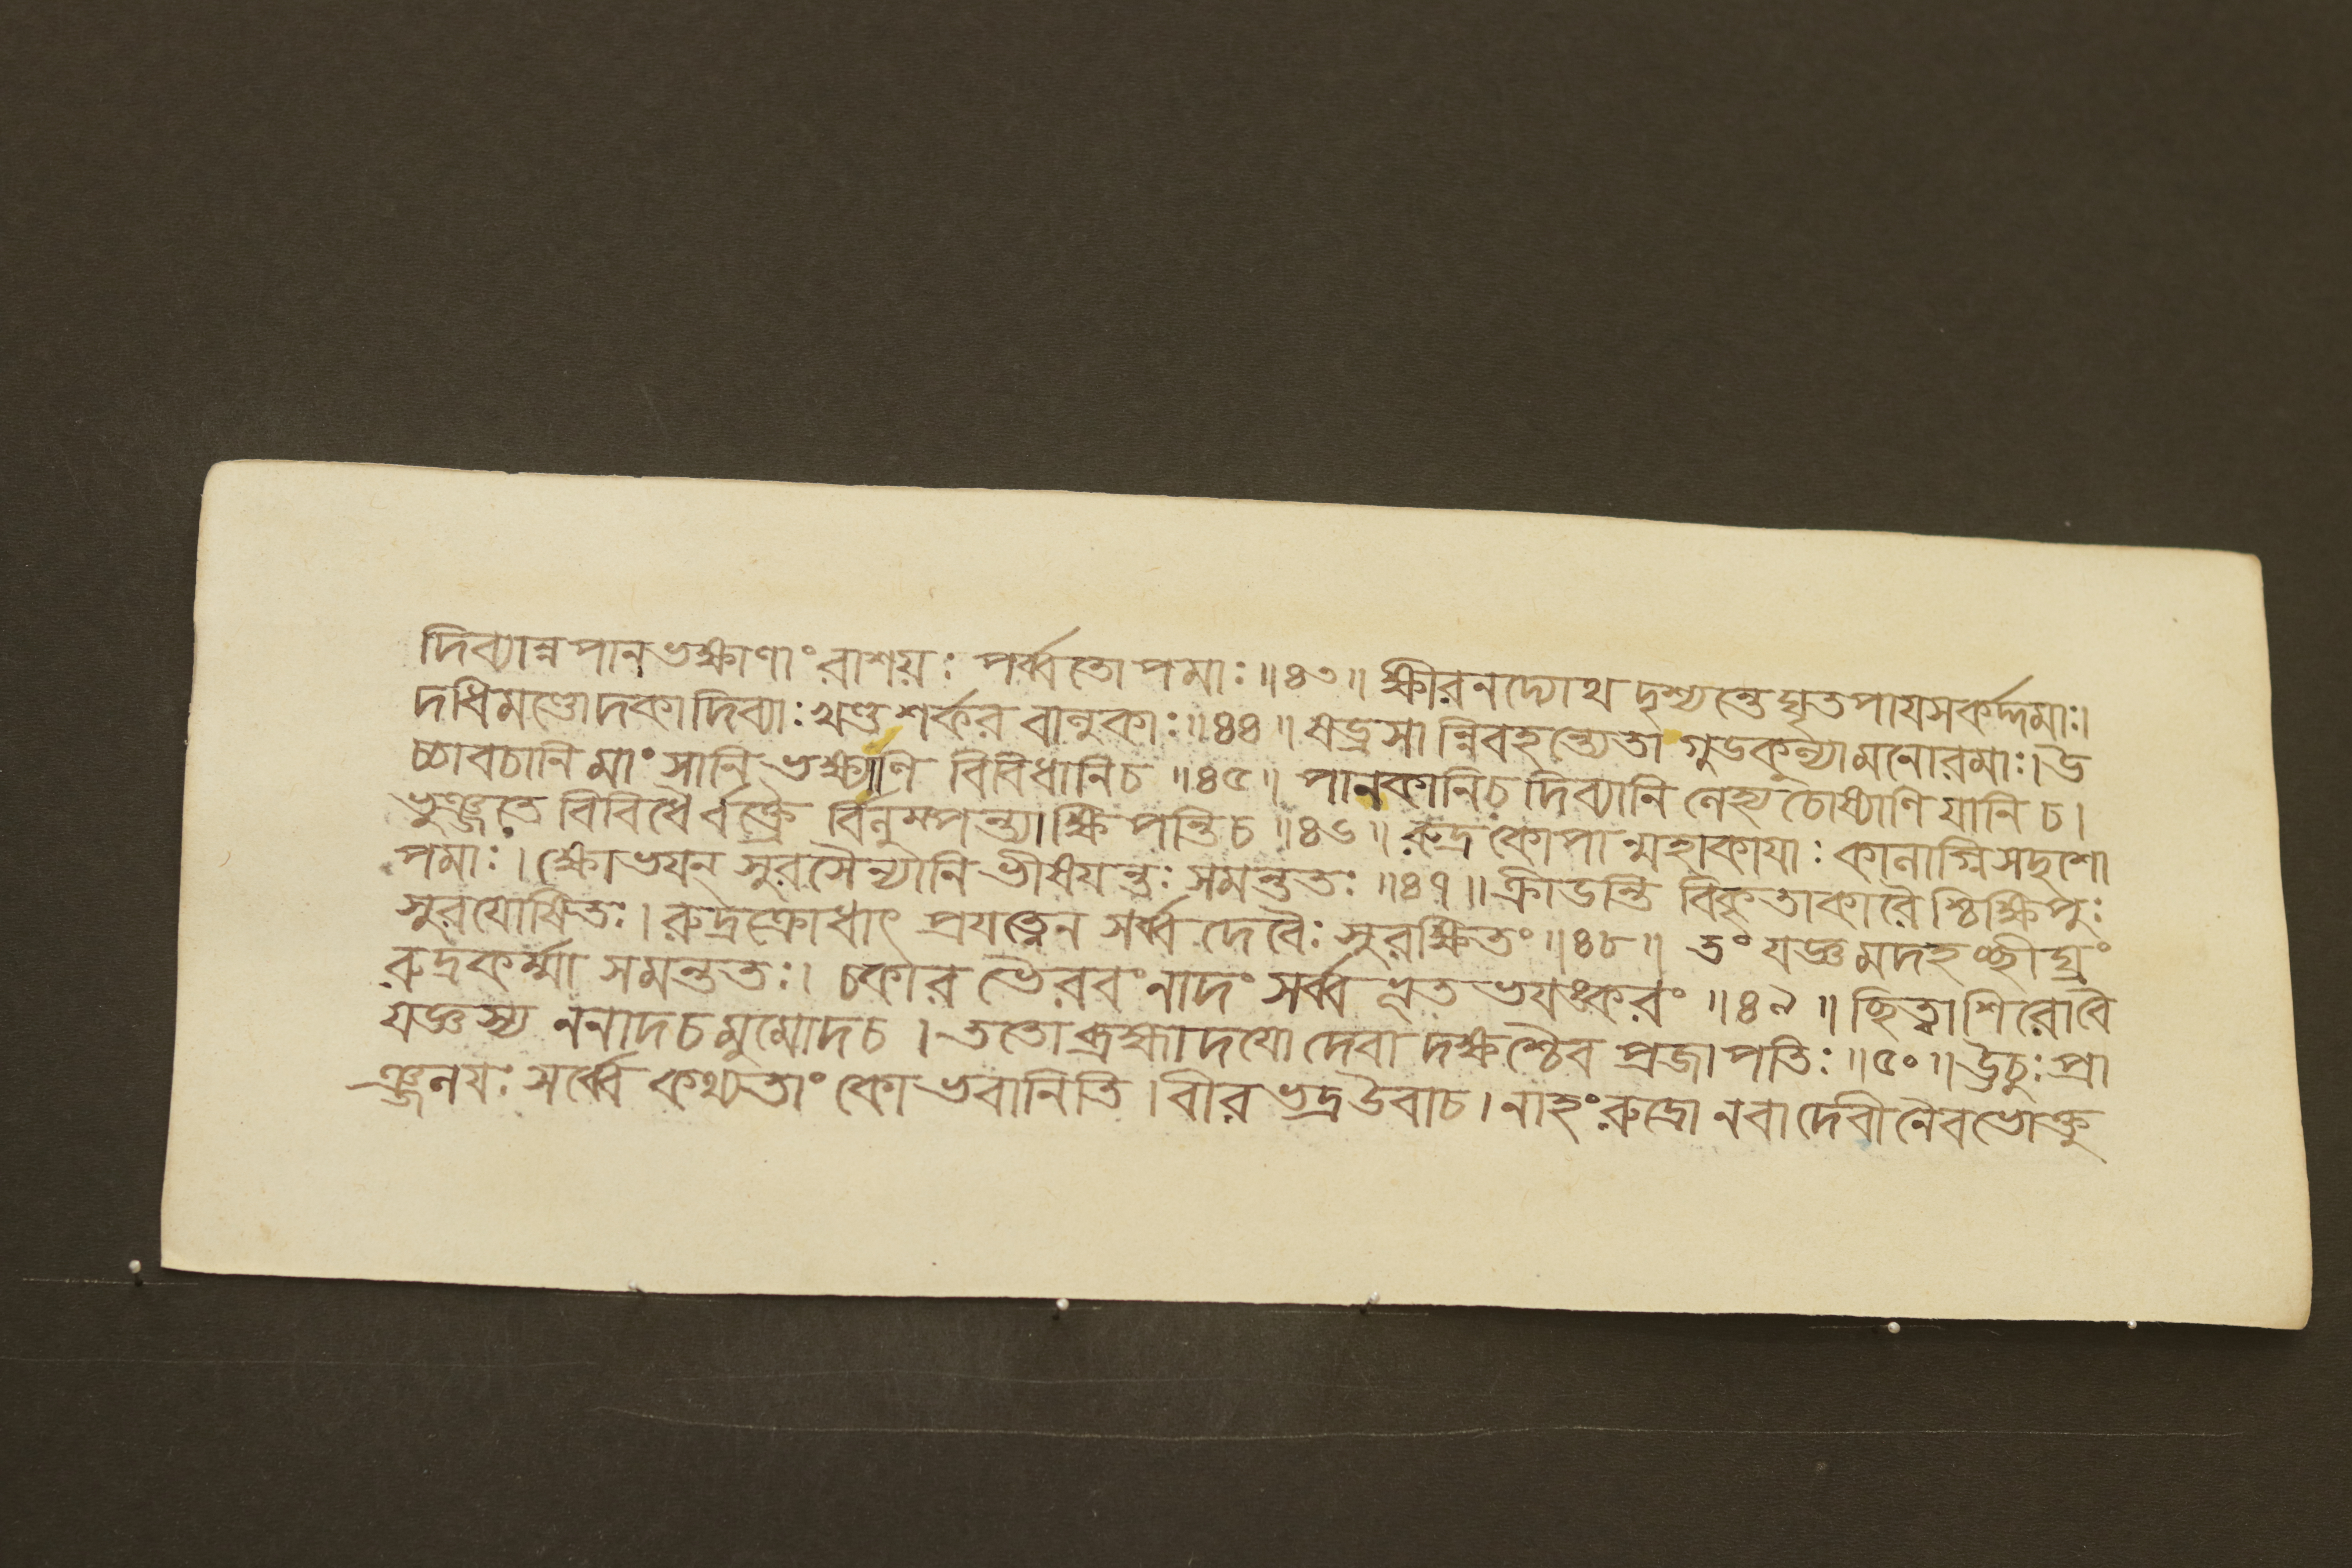 দিব্যান্নপানভক্ষাণাং রাশয়ঃ পর্ব্বতোপমাঃ ॥৪৩॥ ক্ষীরনদ্যোথ দৃশ্যন্তে ঘৃতপায়সকর্দ্দমাঃ।
দধিমণ্ডোদকাদিব্যাঃ খণ্ডশর্কর বানুকাঃ ॥৪৪॥ ষড্রসান্নিবহন্ত্যেতা গুডকুন্যামনোরমাঃ। উ
চ্চাবচানি মাংসানি ভক্ষ্যাণি বিবিধানি চ ॥৪৫॥ পানকানি চ দিব্যানি নেহ্য চোষ্যাণি যানি চ।
ভুঞ্জতে বিবিধৈর্বক্ত্রৈ র্বিনুম্পন্ত্যাক্ষিপন্তি চ ॥৪৬॥ রুদ্রকোপান্মহাকাযাঃ কানাগ্নিসদৃশো
পমাঃ। ক্ষোভযন্ সুরসৈন্যানি ভীষযন্তঃ সমন্ততঃ ॥৪৭॥ ক্রীডন্তি বিকৃতাকারৈ শ্চিক্ষিপুঃ
সুরযোষিতঃ। রুদ্রক্রোধাৎ প্রযত্নেন সর্ব্বদেবৈঃ সুরক্ষিতং ॥৪৮॥ তং যজ্ঞমদহচ্ছীঘ্রং
রুদ্রকর্ম্মা সমন্ততঃ। চকার ভৈরবং নাদং সর্ব্বভূতভযঙ্করং ॥৪৯॥ ছিত্বা শিরো বৈ
যজ্ঞস্য ননাদ চ মুমোদ চ। ততো ব্রহ্মাদযো দেবা দক্ষশ্চৈব প্রজাপতিঃ ॥৫০॥ উচুঃ প্রা
ঞ্জনযঃ সর্ব্বে কথ্যতাং কো ভবানিতি। বীরভদ্র উবাচ। নাহং রুদ্রো নবা দেবী নৈব ভোক্তু